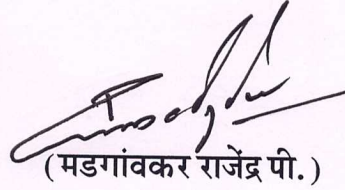 ( मडगांवकर राजेंद्र पी. )